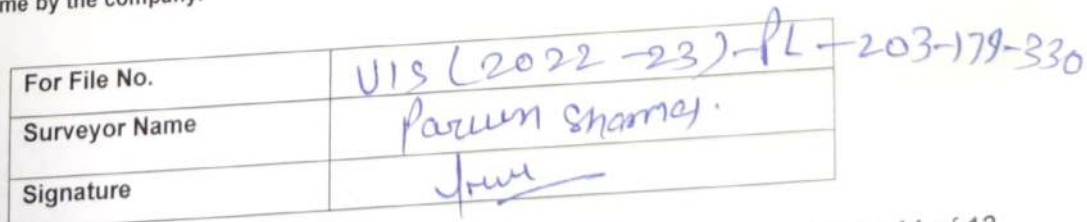 me by the company.
For File No. VIS (2022-23)-PL-203-179-330
Surveyor Name Parwen Sharma.
Signature
of 12